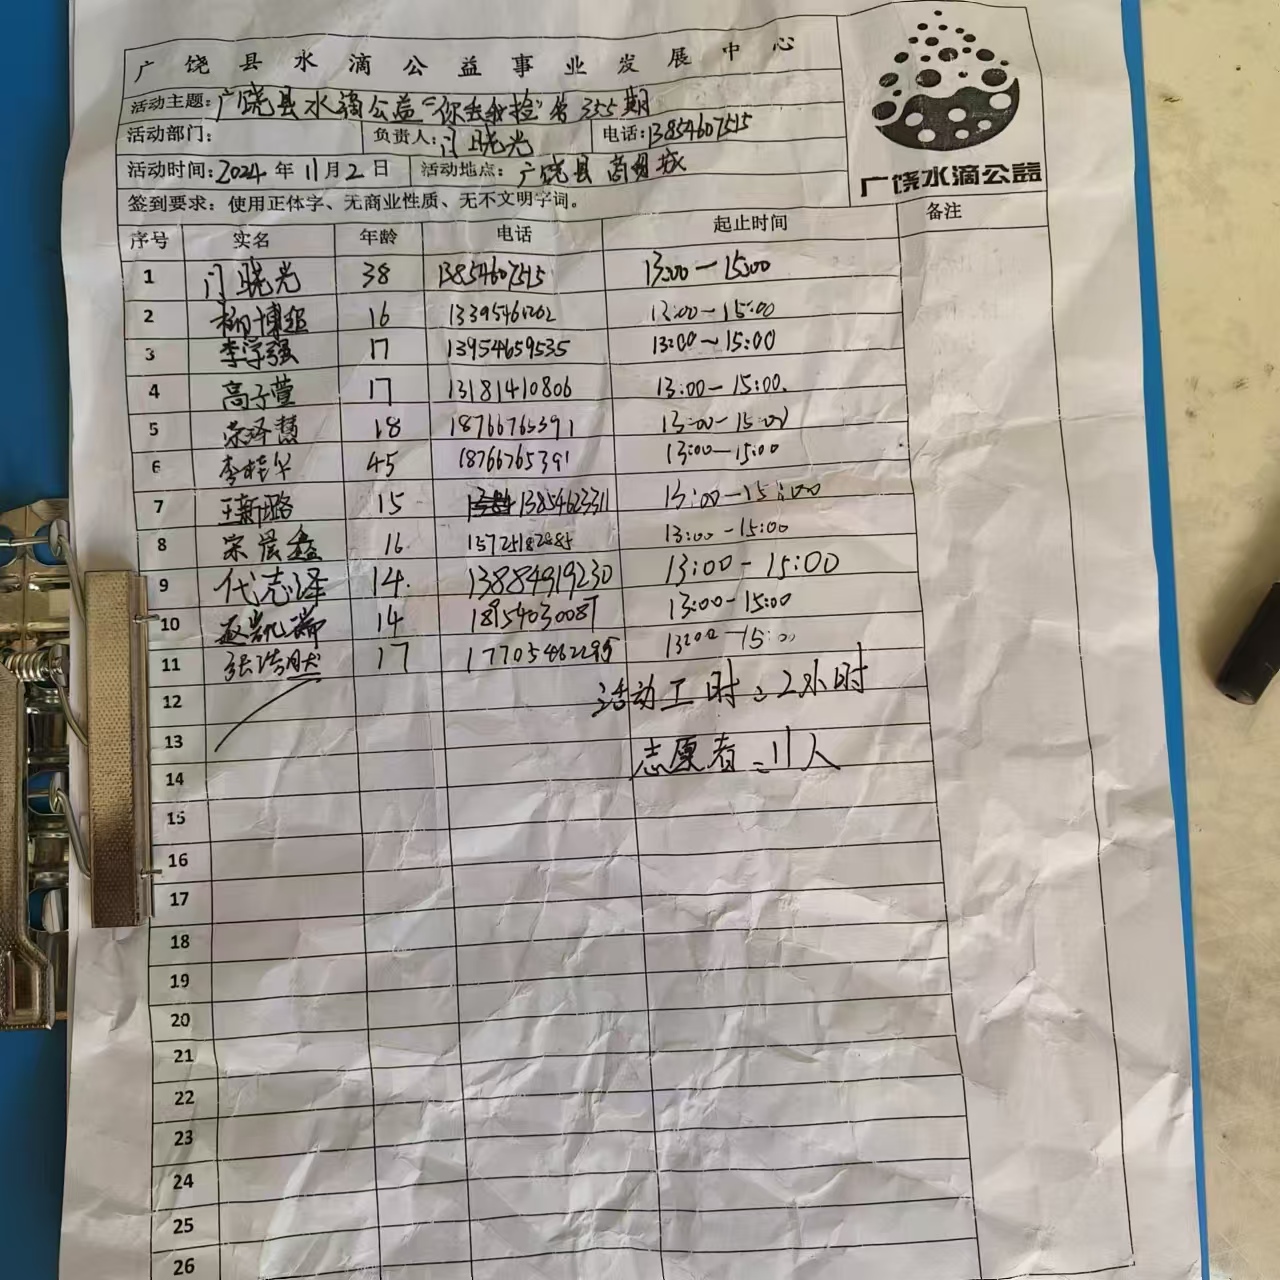 广饶县水滴公益事业发展中心
活动主题：广饶县水滴公益“你丢我捡”第355期
活动部门： 负责人：门晓光 电话：13854607515
活动时间：2024年11月2日 活动地点：广饶县商贸城
签到要求：使用正体字、无商业性质、无不文明字词。
广饶水滴公益
序号 实名 年龄 电话 起止时间 备注
1 门晓光 38 13854607515 13:00-15:00
2 柳博超 16 13395461262 13:00-15:00
3 李学强 17 13954659535 13:00~15:00
4 高子萱 17 13181410806 13:00-15:00.
5 荣泽慧 18 18766765391 13:00-15:00
6 李桂华 45 18766765391 13:00-15:00
7 王新璐 15 13854623311 13:00-15:00
8 宋晨鑫 16 15725182885 13:00-15:00
9 代志泽 14. 13884919230 13:00-15:00
10 赵凯瑞 14 18954030087 13:00-15:00
11 张浩 17 17705462295 13:00-15:00
12 活动工时：2小时
13
14 志愿者：11人
15
16
17
18
19
20
21
22
23
24
25
26